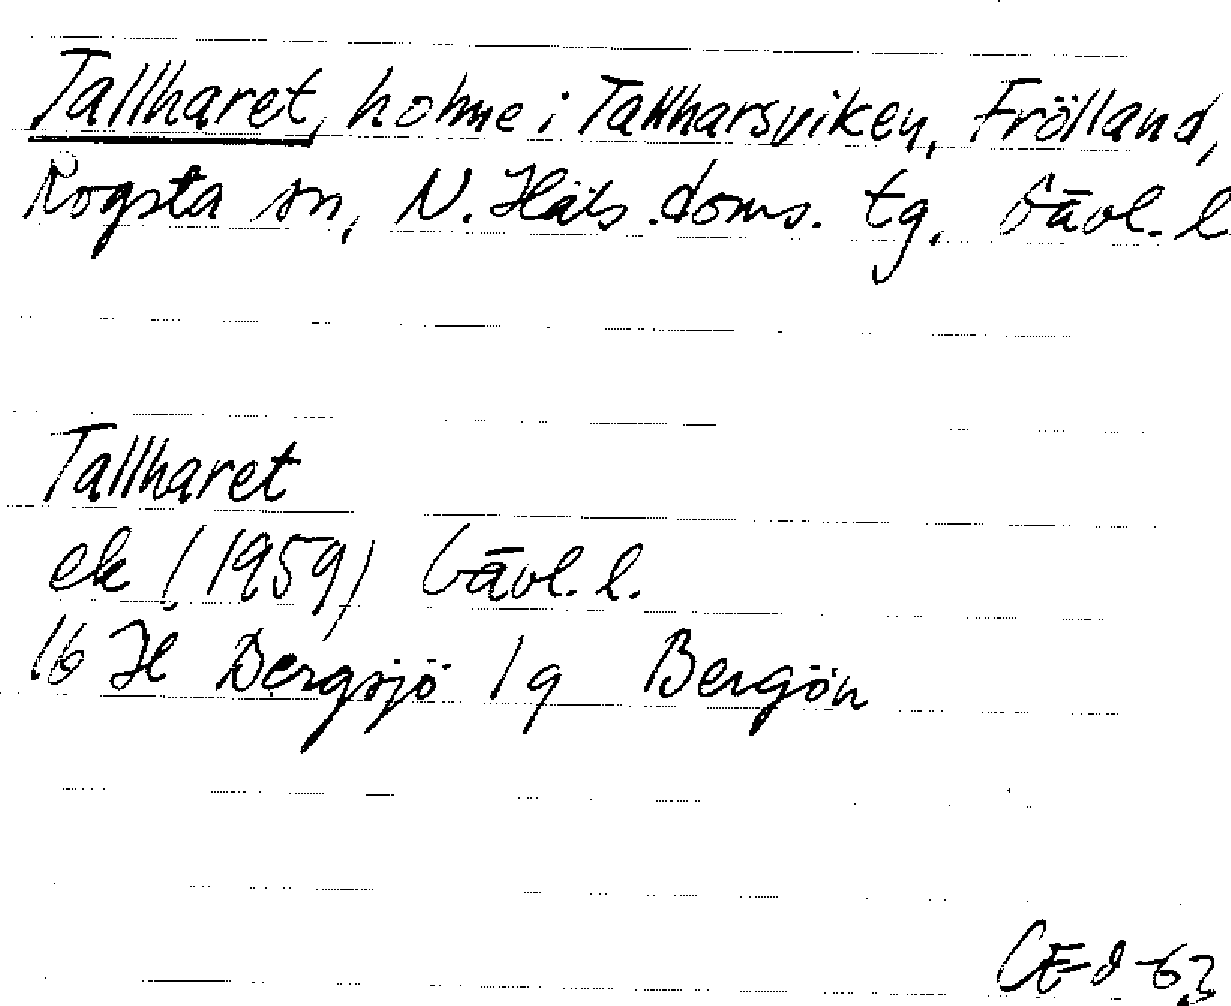 Tallharet, holme i Tallharsviken, Frölland,
Rogsta sn, N. Häls. doms. tg. Gävl. l
Tallharet
ek (1959) Gävl. l.
16 H Bergsjö 1g Bergön